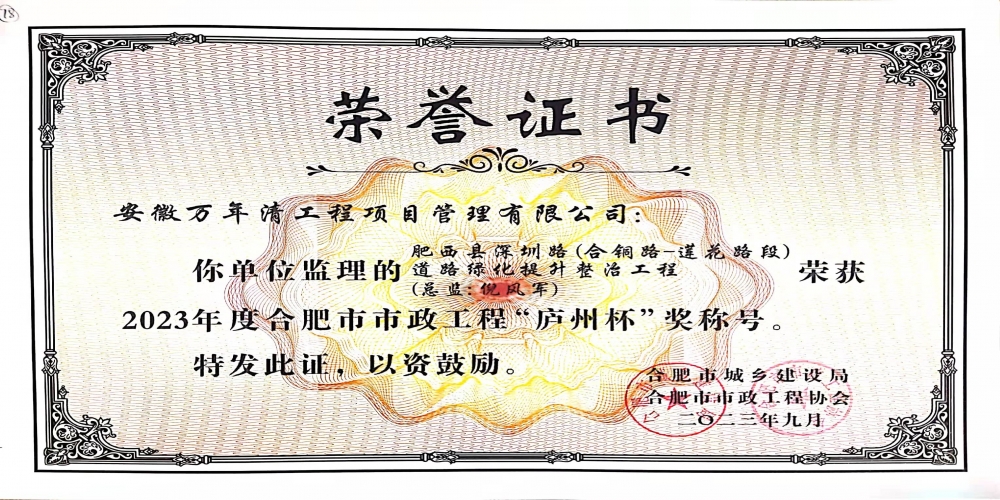 18
荣誉证书
安徽万年清工程项目管理有限公司:
你单位监理的 肥西县深圳路(合铜路-莲花路段)
道路绿化提升整治工程
(总监:倪风军)
荣获
2023年度合肥市市政工程“庐州杯”奖称号。
特发此证，以资鼓励。
合肥市城乡建设局
合肥市市政工程协会
二〇二三年九月